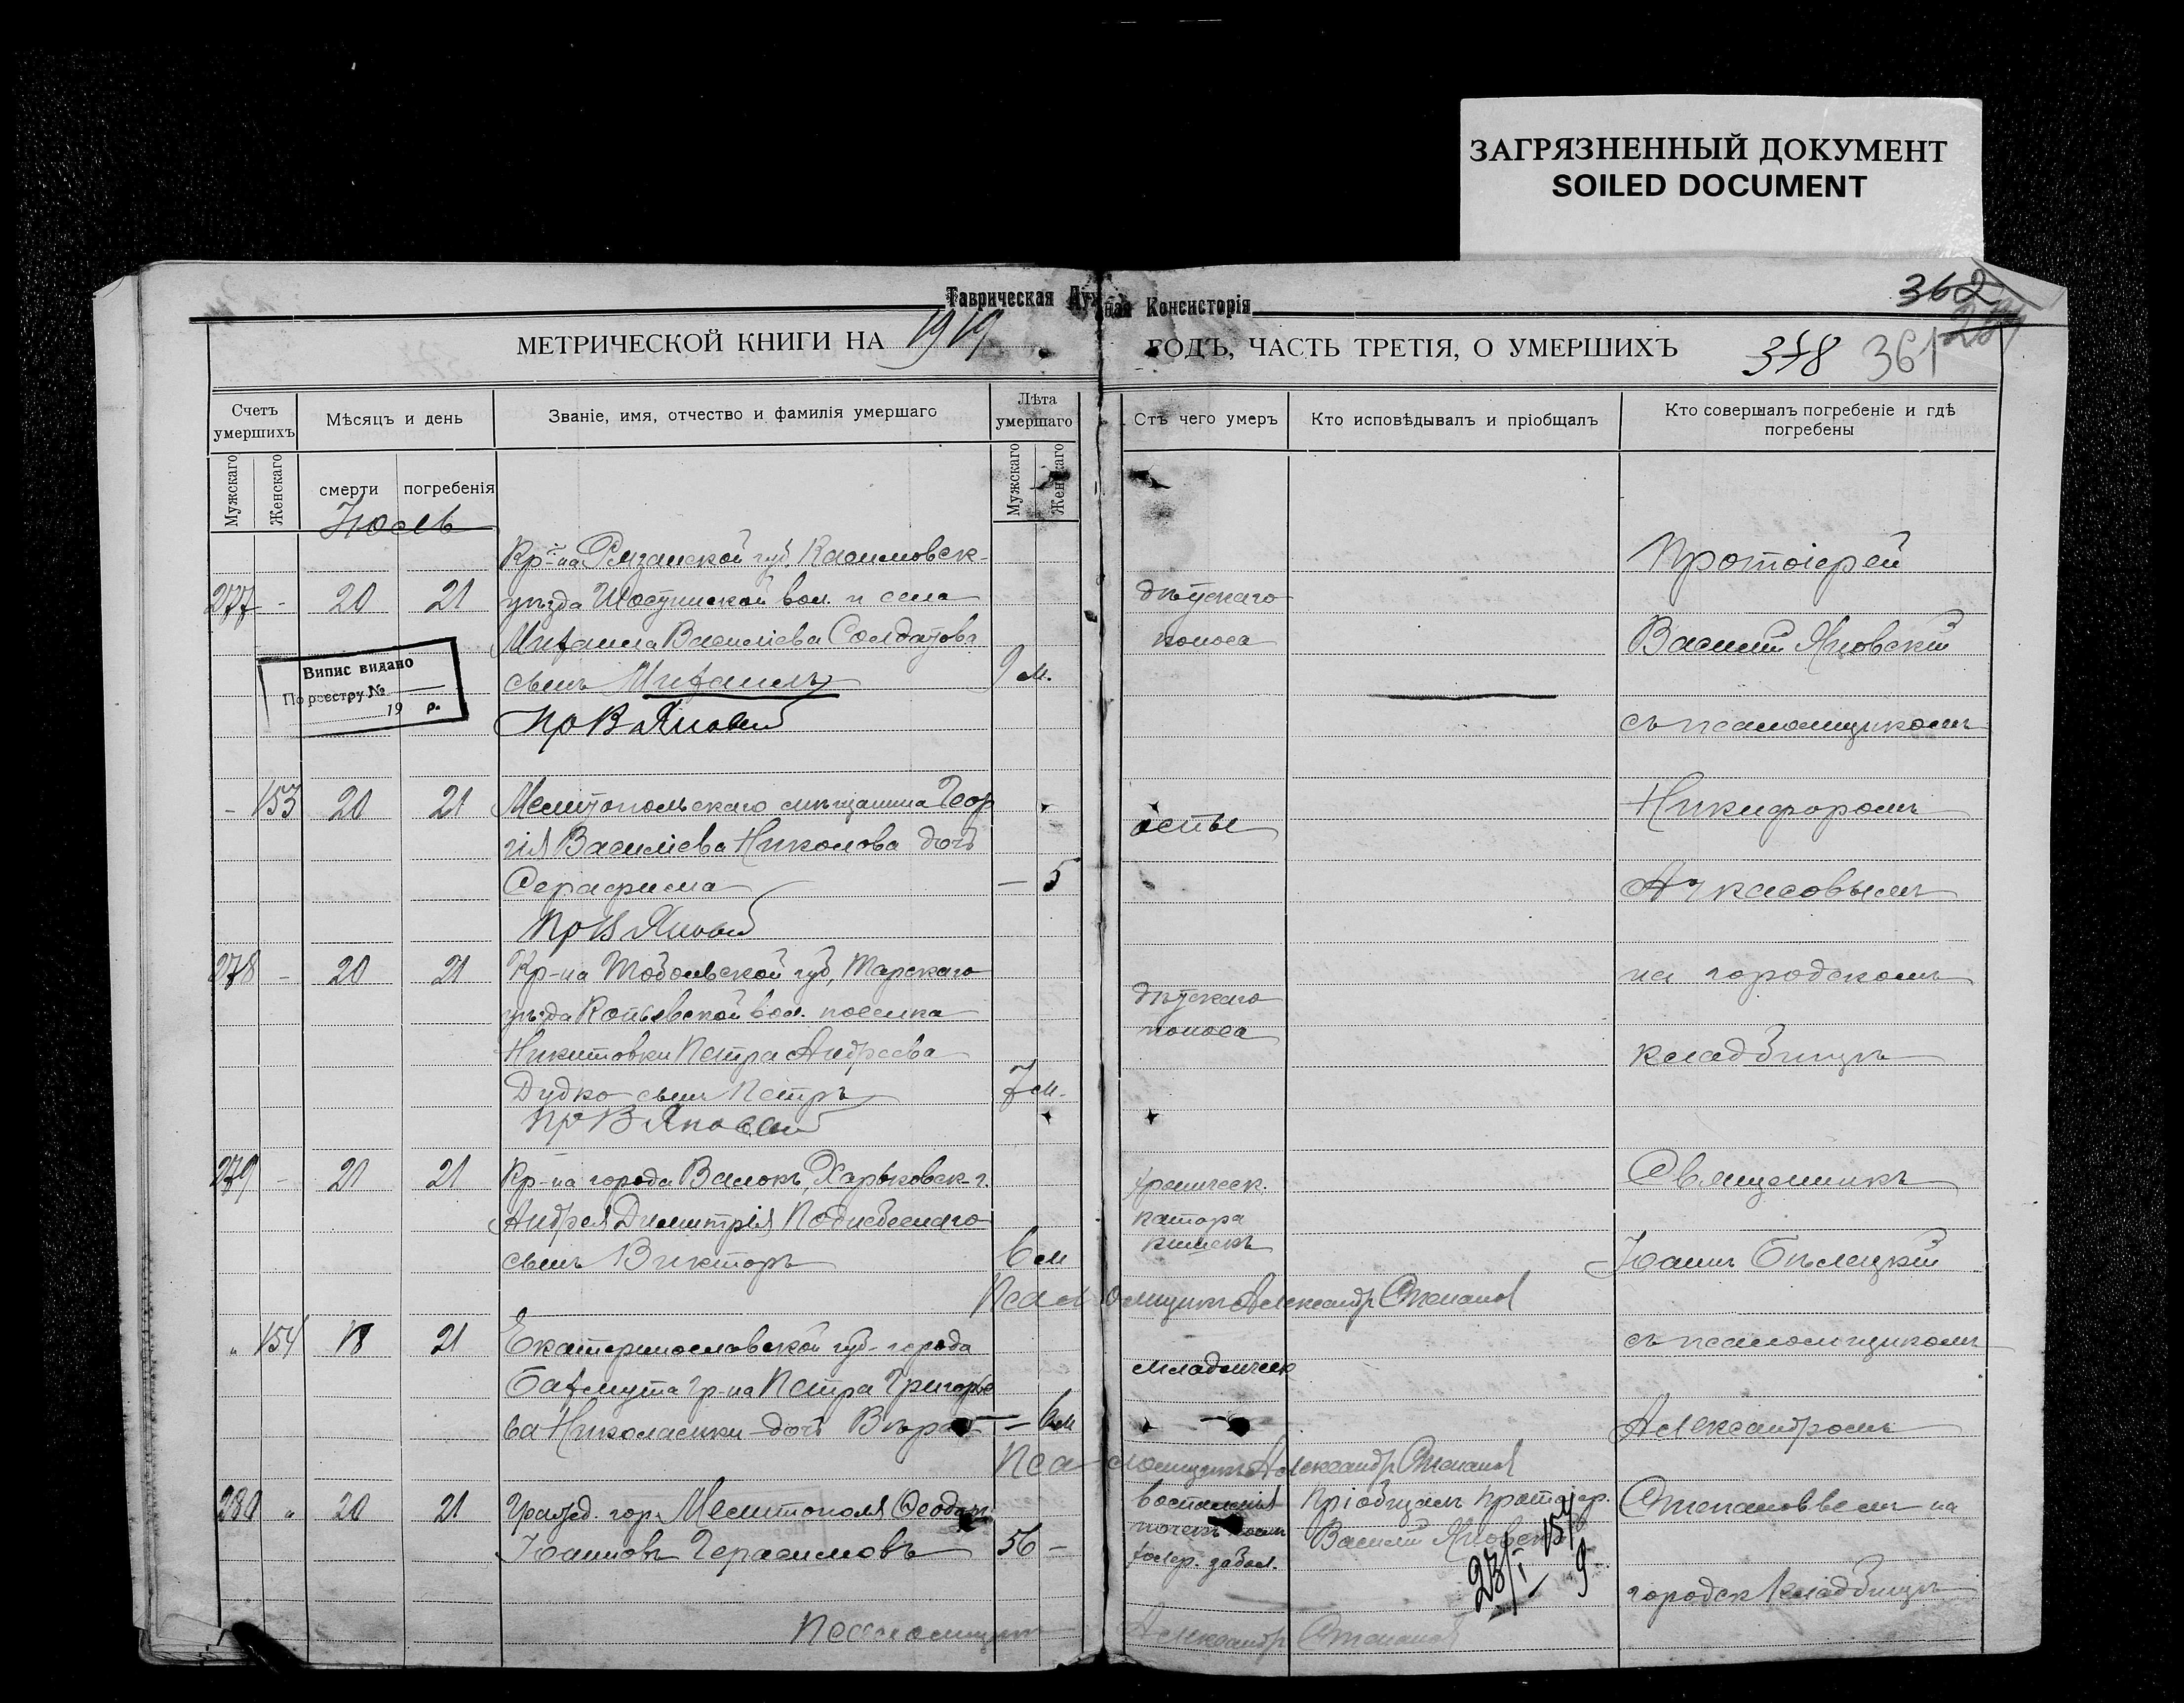 ЗАГРЯЗНЕННЫЙ ДОКУМЕНТ
SOILED DOCUMENT
Таврическая Духовная Консисторія
362
МЕТРИЧЕСКОЙ КНИГИ НА 1919 ГОДЪ, ЧАСТЬ ТРЕТІЯ, О УМЕРШИХЪ
378 361
Счетъ умершихъ
Мѣсяцъ и день
Званіе, имя, отчество и фамилія умершаго
Лѣта умершаго
Отъ чего умеръ
Кто исповѣдывалъ и пріобщалъ
Кто совершалъ погребеніе и гдѣ погребены
Мужскаго
Женскаго
смерти
погребенія
Мужскаго
Женскаго
Іюль
277 - 20 21
Кр-на Рязанской губ. Касимовск-
уѣзда вол. и села
Михаила Василіева Солдатова
сынъ Михаилъ
9 м.
дѣтскаго
поноса
Пр В Яновскій
Випис видано
По реестру №
19 р.
- 153 20 21
Мелитопольскаго мѣщанина Геор
гія Василіева Николова дочь
Серафима
- 5
оспы
Пр В Яновскій
278 - 20 21
Кр-на Тобольской губ. Тарскаго
уѣзда Копьевской вол. поселка
Никитовки Петра Андреева
Дудко сынъ Петръ
7 м.
дѣтскаго
поноса
Пр В Яновскій
Протоіерей
Василій Яновскій
съ псаломщикомъ
Никифоромъ
Ачкасовымъ
на городскомъ
кладбищѣ
279 - 21 21
Кр-на города Валокъ, Харьковск. г.
Андрея Димитрія Поднебеснаго
сынъ Викторъ
6 м
хроническ.
катора
кишекъ
Псаломщикъ Александр Степанов
" 154 18 21
Екатеринославской губ. города
Бахмута гр-на Петра Григорье
ва Николаенки дочь Вѣра
- 6 м
младенческ
Псаломщикъ Александр Степанов
280 " 20 21
Гражд. гор. Мелитополя Ѳеодоръ
Іоанновъ Герасимовъ
56 -
воспаленія
почекъ
холер. забол.
Пріобщалъ протоіер.
Василій Яновскій
23/I
Псаломщикъ
Александр Степанов
Священникъ
Іоаннъ Бѣлецкій
съ псаломщикомъ
Александромъ
Степановвымъ на
городск кладбищѣ